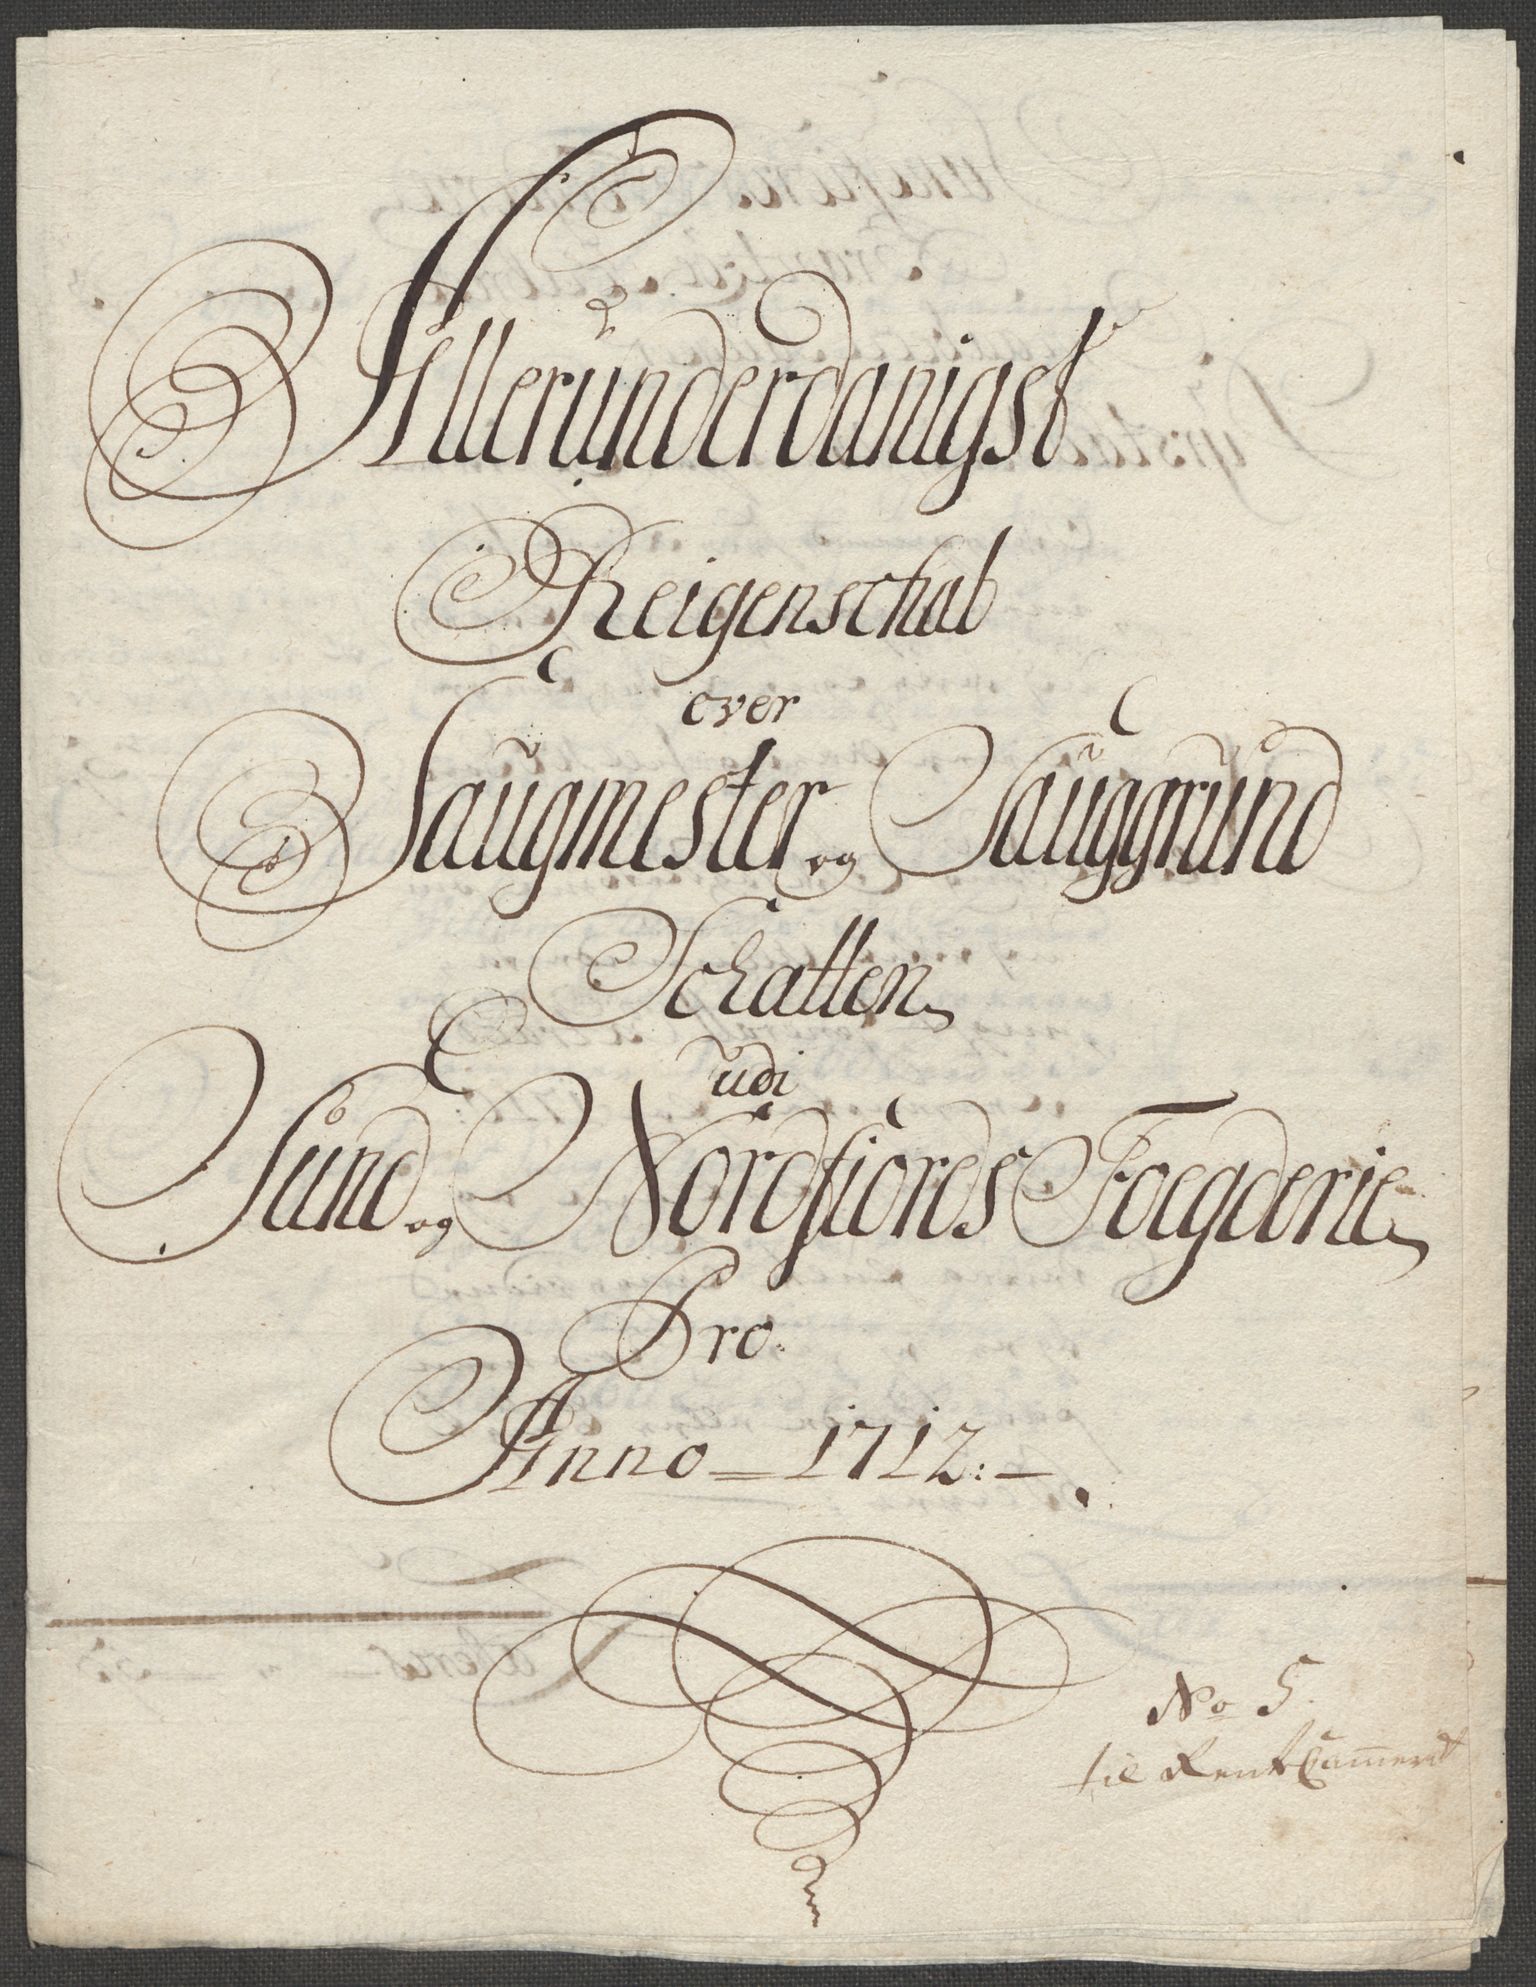 Allerúnderdanigst
Reigenschab
over
Saúgmester og Saúggrúnd
Schatten
údi
Súnd og Nordfiords Foegderie
Pro.
Anno = 1712: -
No 5.
til RentCammerit